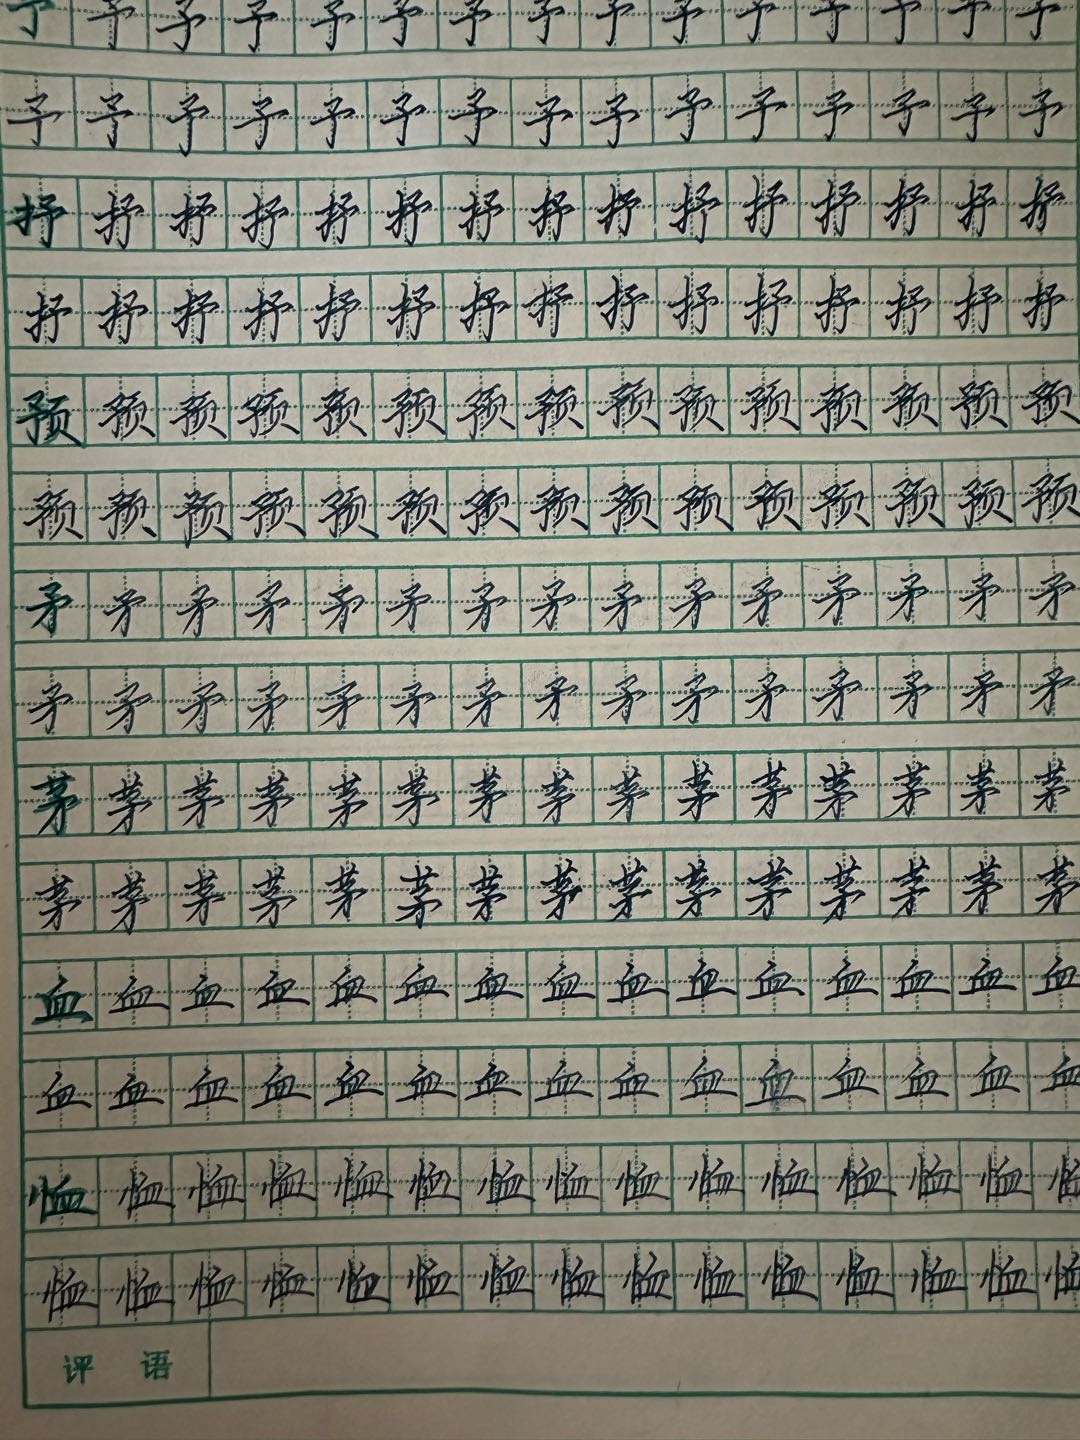 予予予予予予予予予予予予予予予
予予予予予予予予予予予予予予予
抒抒抒抒抒抒抒抒抒抒抒抒抒抒抒
抒抒抒抒抒抒抒抒抒抒抒抒抒抒抒
预预预预预预预预预预预预预预预
预预预预预预预预预预预预预预预
矛矛矛矛矛矛矛矛矛矛矛矛矛矛矛
矛矛矛矛矛矛矛矛矛矛矛矛矛矛矛
茅茅茅茅茅茅茅茅茅茅茅茅茅茅茅
茅茅茅茅茅茅茅茅茅茅茅茅茅茅茅
血血血血血血血血血血血血血血血
血血血血血血血血血血血血血血血
恤恤恤恤恤恤恤恤恤恤恤恤恤恤恤
恤恤恤恤恤恤恤恤恤恤恤恤恤恤恤
评 语